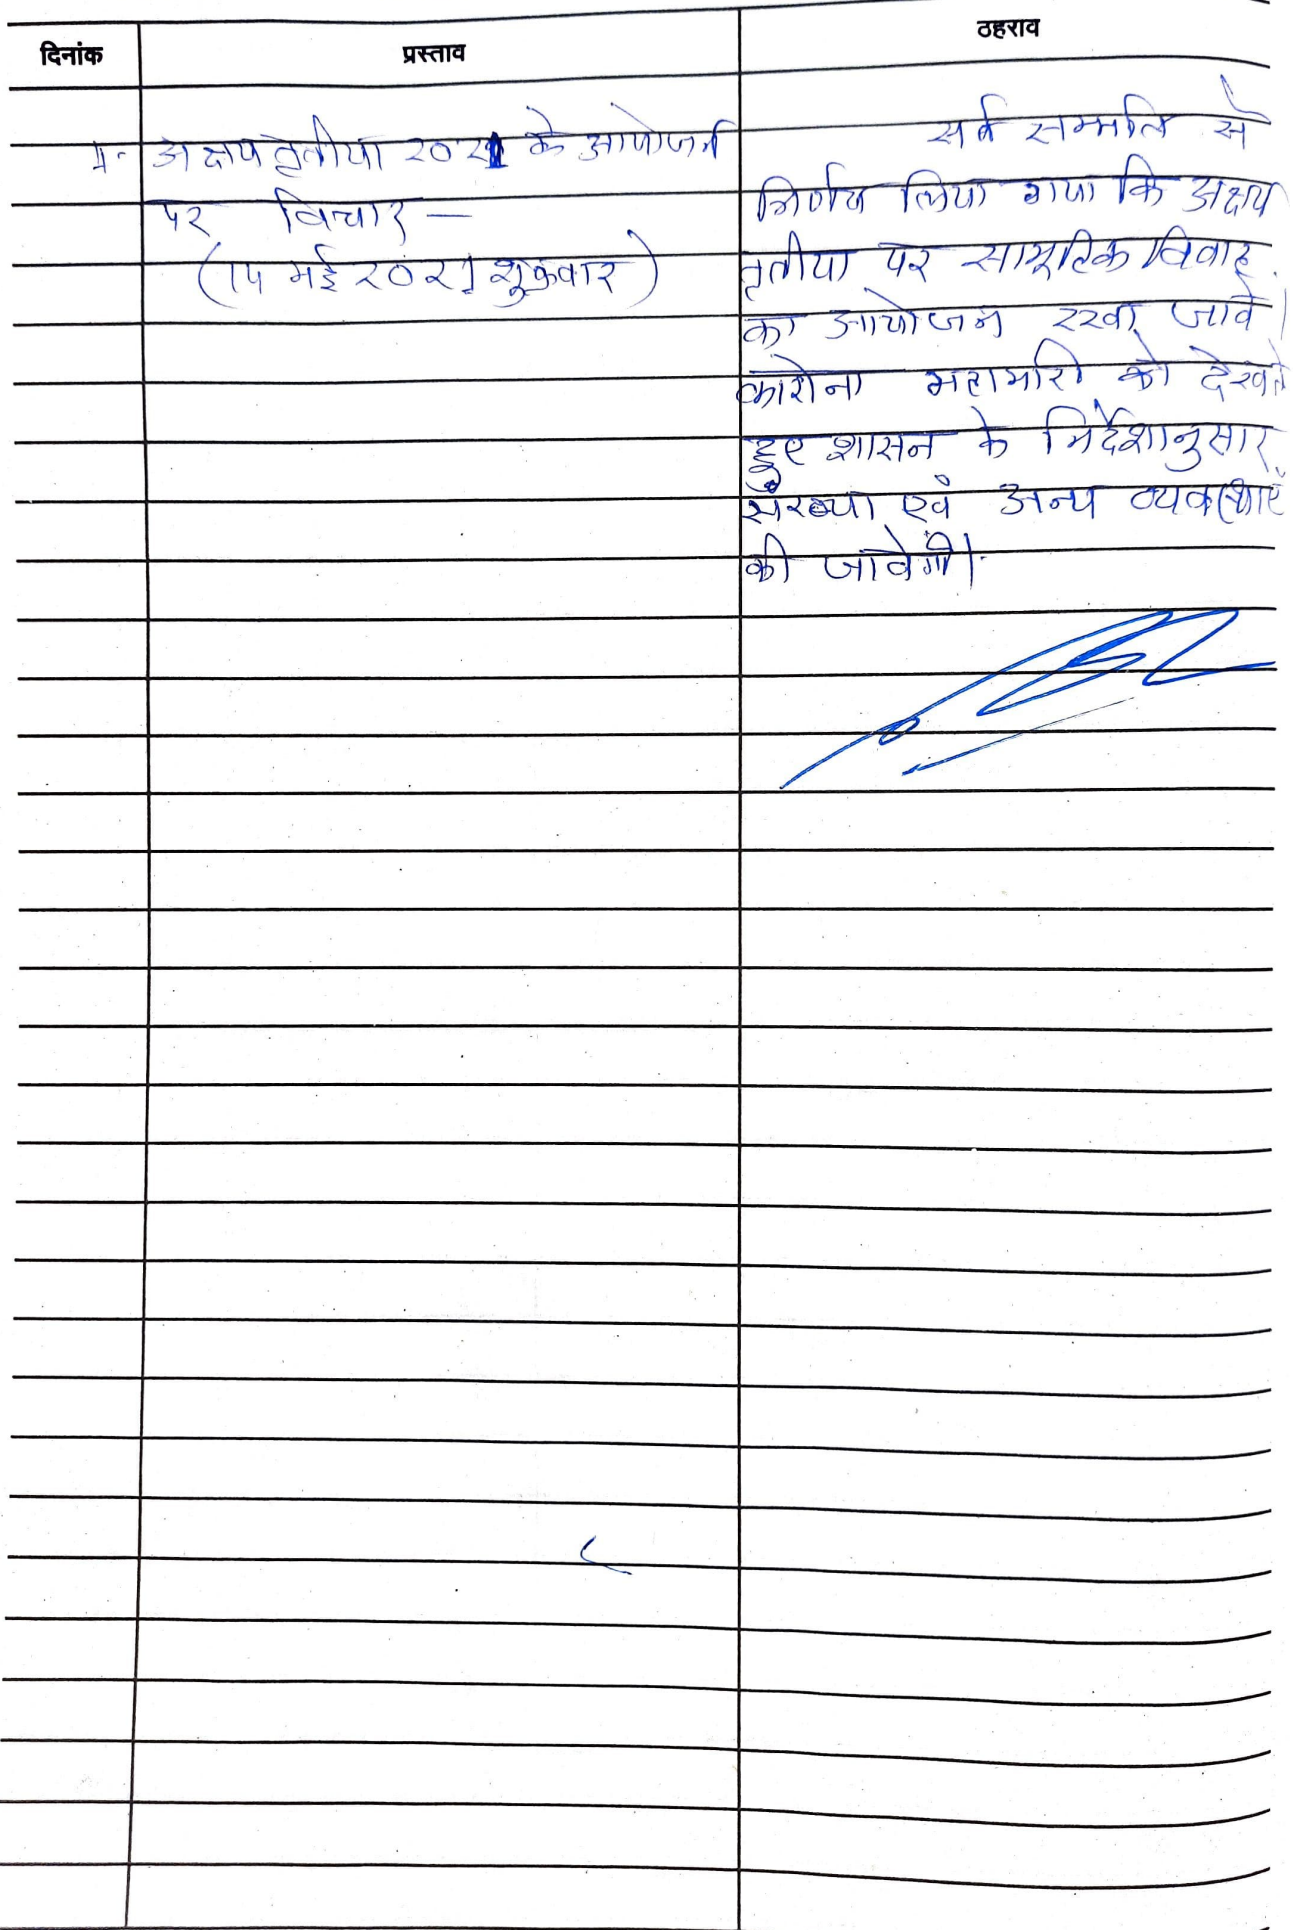 दिनांक
प्रस्ताव
ठहराव
4- अक्षय तृतीया 2021 के आयोजन
पर विचार —
(14 मई 2021 शुक्रवार)
सर्व सम्मति से
निर्णय लिया गया कि अक्षय
तृतीया पर सामूहिक विवाह
का आयोजन रखा जावे।
कोरोना महामारी को देखते
हुए शासन के निर्देशानुसार
संख्या एवं अन्य व्यवस्थाएँ
की जावेगी।